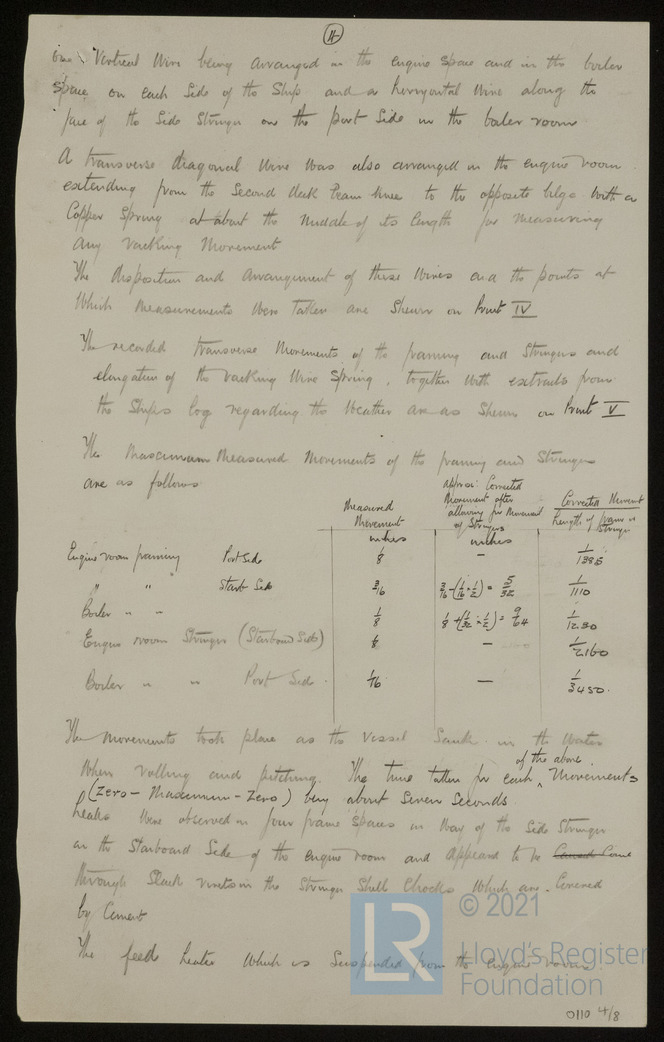 4
one Vertical Wire being arranged in the engine space and in the boiler
space on each Side of the Ship and a horizontal Wire along the
face of the Side Stringer on the port Side in the boiler room
A transverse diagonal Wire Was also arranged in the engine room
extending from the Second deck beam knee to the opposite bilge With a
Copper Spring at about the Middle of its length for Measuring
any racking Movement
The disposition and arrangement of these Wires and the points at
Which Measurements Were Taken are Shewn on Print IV
The recorded transverse Movements of the framing and Stringers and
elongation of the racking Wire Spring, together With extracts from
the Ships log regarding the Weather are as Shewn on Print V
The Maximum Measured Movements of the framing and Stringers
are as follows
Measured Movement
approx: Corrected Movement after allowing for Movement of Stringers
Corrected Movemt / Length of frame or Stringer
inches inches
Engine room framing Port Side 1/8 — 1/1385
" " Starbd Side 3/16 3/16-(1/16×1/2) = 5/32 1/1110
Boiler " " 1/8 1/8+(1/32×1/2) = 9/64 1/1230
Engine room Stringer (Starboard Side) 1/8 — 1/2160
Boiler " " Port Side. 1/16 — 1/3450.
The Movements took place as the Vessel Sank in the Water
When rolling and pitching. The time taken for each of the above Movements
(Zero - Maximum - Zero) being about Seven Seconds
Leaks Were observed in four frame spaces in Way of the Side Stringer
on the Starboard Side of the engine room and appeared to be Caused Come
through Slack rivets in the Stringer Shell Chocks Which are Covered
by Cement
The feed heater Which is Suspended from the engine room
© 2021
LR
Lloyd's Register
Foundation
0110 4/8